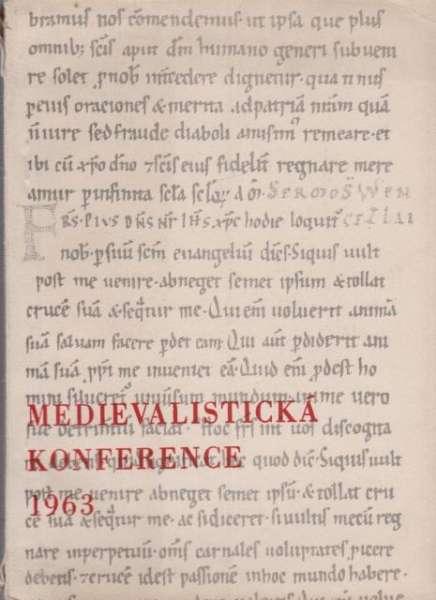 bramus nos c̄omendemus · ut ipsa que plus
omnib; sc̄is aput dm̄ humano generi subueni
re solet p nob̄ int̄cedere dignetur · qua n̄ nisi
peius oraciones & merita adpatriā
n̄ iure sed fraude diaboli remeare · et
ibi cū x̄po dn̄o ⁊ sc̄is eius fidelit̄ regnare mere
amur p infinita sc̄la sc̄lo⁊ am̄ SERMO S̄ WEN
FR̄S · PIUS DN̄S NR̄ IHS̄ XP̄C hodie loquit̄ CEZLAI
nob̄ · p suū scm̄ euangeliū dic̄s · Siquis uult
post me uenire · abneget semet ipsum & tollat
crucē suā & seq̄tur me · Qui eni᷒ uoluerit animā
suā saluam facere p̄det eam · Qui aut̄ p̄diderit ani
mā suā p̄pt̄ me inueniet eā · Quid eni᷒ p̄dest ho
mini si
MEDIEVALISTICKÁ
faciat · Hoc fr̄s int̄ uos discogita
KONFERENCE
quod dic̄ · Siquis uult
post me uenire abneget semet ipsū & tollat cru
1963
cē suā & seq̄tur me · ac si diceret · si uultis mecū reg
nare inperpetuū · om̄s carnales uoluptates
debetis · ⁊ crucē idest passionē inhoc mundo habere ·